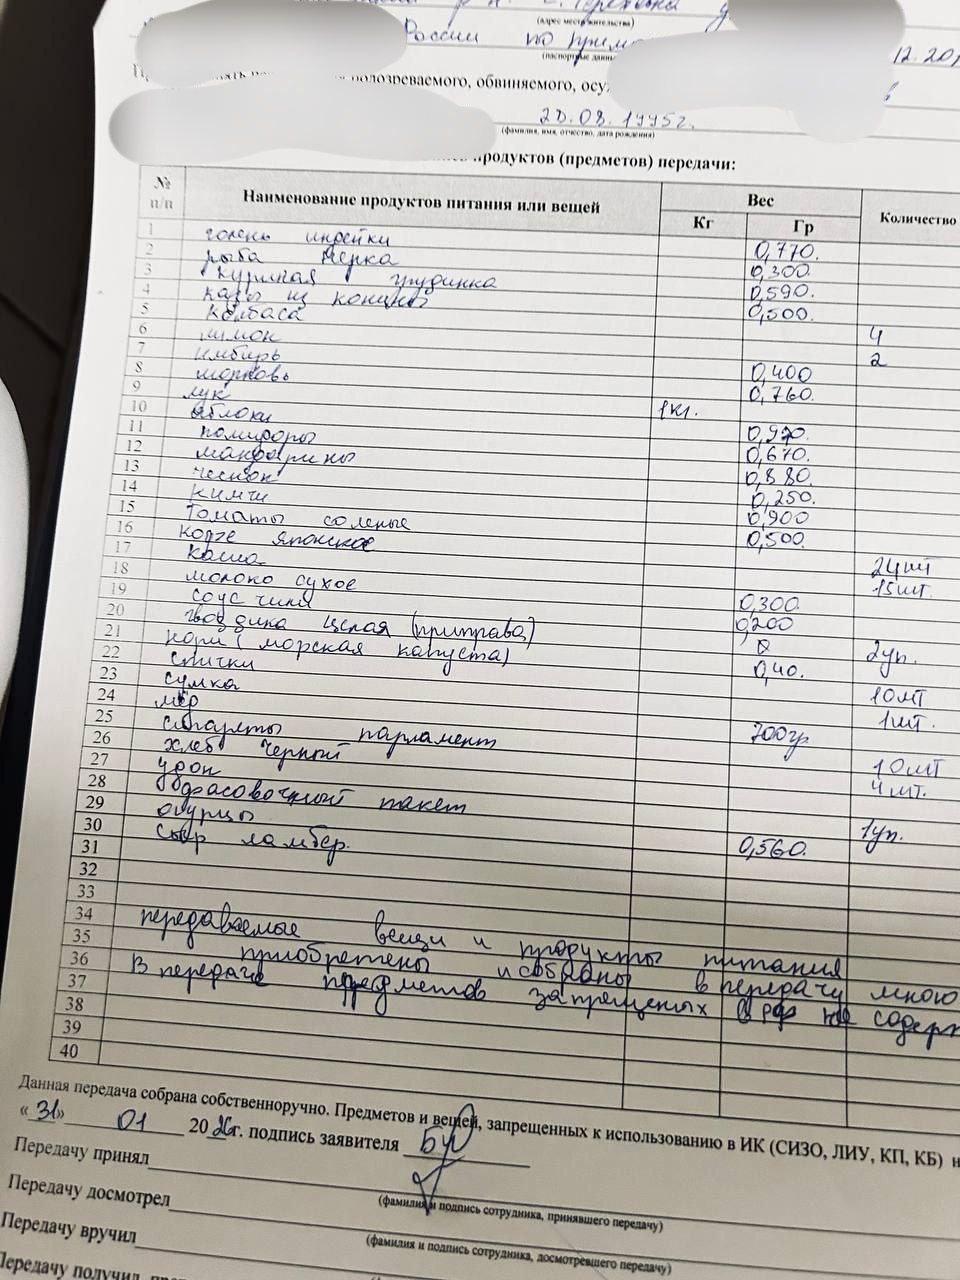 (адрес места жительства)
России по Прим
12.20
(паспортные данн
подозреваемого, обвиняемого, осу
20.08.1995г.
(фамилия, имя, отчество, дата рождения)
продуктов (предметов) передачи:
№ п/п Наименование продуктов питания или вещей Вес Кг Гр Количество
1 голень индейки 0,770.
2 рыба нерка 0,300.
3 куриная грудинка 0,590.
4 казы из конины 0,500.
5 колбаса
6 лимон 4
7 имбирь 2
8 морковь 0,400
9 лук 0,760.
10 яблоки 1кг.
11 помидоры 0,970.
12 мандарины 0,670.
13 чеснок 0,880.
14 кимчи 0,250.
15 томаты соленые 0,900
16 кофе японское 0,500.
17 каша 24шт
18 молоко сухое 15шт.
19 соус чили 0,300.
20 гвоздика целая (приправа) 0,200
21 нори (морская капуста) 2уп.
22 спички 0,40.
23 сумка 10шт
24 мёд 1шт.
25 сигареты парламент 700гр
26 хлеб черный 10шт
27 удон 4шт.
28 фасовочный пакет
29 огурцы 1уп.
30 сыр ламбер. 0,560.
31
32
33
34 передаваемые вещи и продукты питания
35 приобретены и собраны в передачу мною
36 В передаче предметов запрещеных в РФ не содерж
37
38
39
40
Данная передача собрана собственноручно. Предметов и вещей, запрещенных к использованию в ИК (СИЗО, ЛИУ, КП, КБ) н
«31» 01 2026г. подпись заявителя
Передачу принял
(фамилия и подпись сотрудника, принявшего передачу)
Передачу досмотрел
(фамилия и подпись сотрудника, досмотревшего передачу)
Передачу вручил
Передачу получил